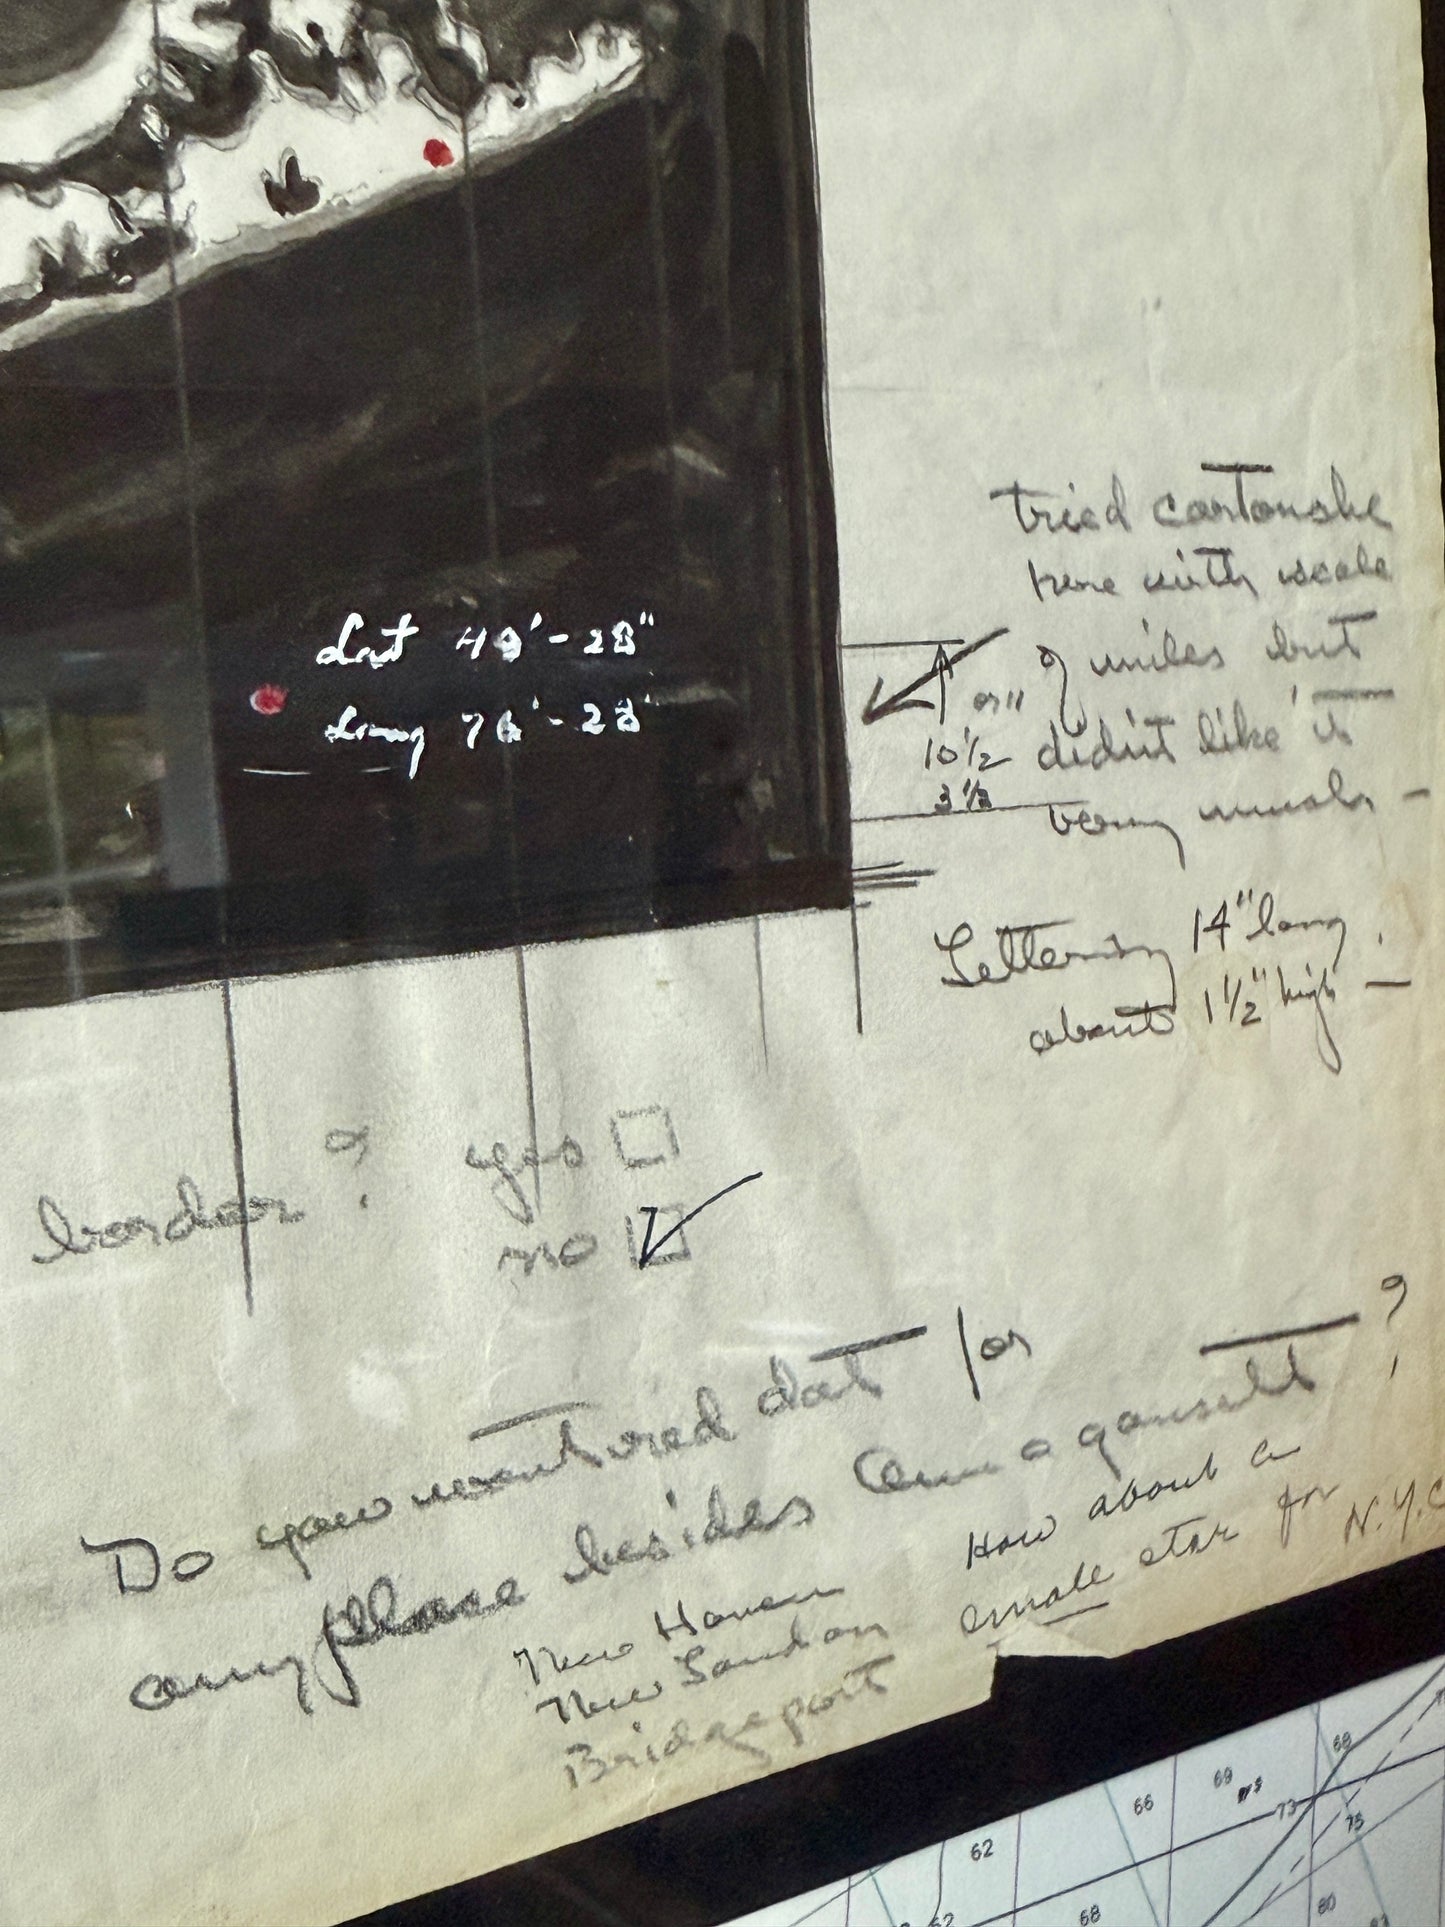 tried cartouche
here with scale
of miles but
didn't like it
beingussuals -
or"
10 1/2
3 1/3
Lat 40' - 28"
Long 76' - 28'
Lettering 14" long
about 1 1/2" high -
border? yes
no
Do you want red dot /or
any place besides Amagansett?
How about a
small star for N.Y.C
New Haven
New London
Bridgeport
66
69
68
73
75
62
68
80